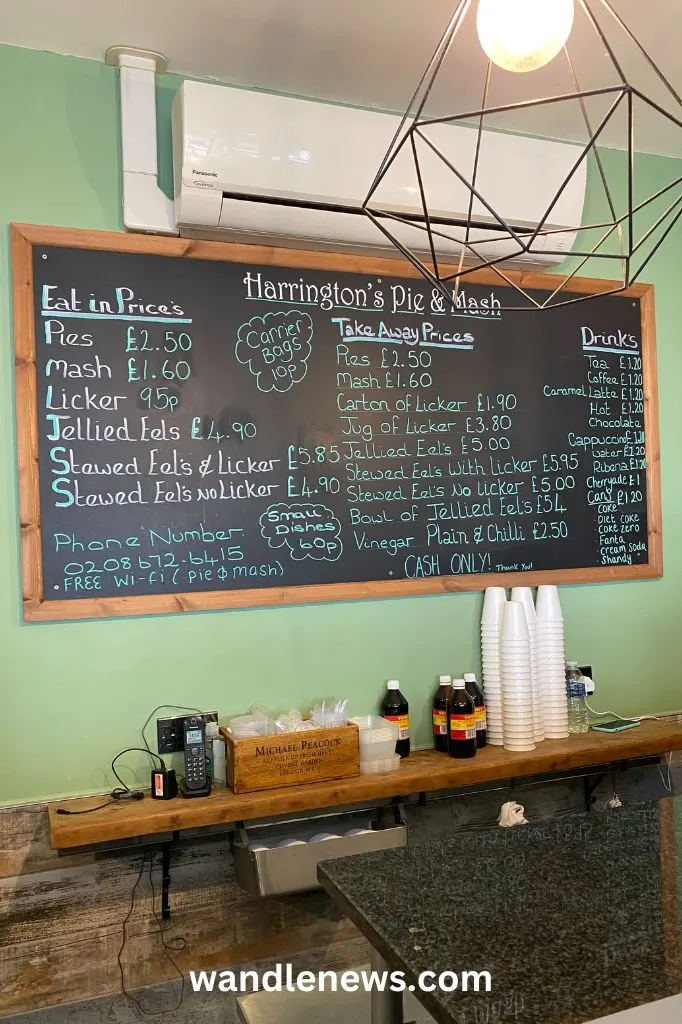 Panasonic
INVERTER
Harrington's Pie & Mash
Eat in Price's
Pies £2.50
Mash £1.60
Licker 95p
Jellied Eels £4.90
Stewed Eel's & Licker £5.85
Stewed Eel's no Licker £4.90
Carrier
Bags
10p
Small
Dishes
60p
Phone Number
0208 672 6415
FREE Wi-fi (pie & mash)
Take Away Prices
Pies £2.50
Mash £1.60
Carton of Licker £1.90
Jug of Licker £3.80
Jellied Eel's £5.00
Stewed Eel's with licker £5.95
Stewed Eel's No licker £5.00
Bowl of Jellied Eels £54
Vinegar Plain & Chilli £2.50
CASH ONLY! Thank You!
Drinks
Tea £1.20
Coffee £1.20
Caramel Latte £1.20
Hot £1.20
Chocolate
Cappuccino £1.20
water £1.20
Ribena £1.20
Cherryade £1
Cans £1.20
· Coke
· Diet Coke
· Coke zero
· Fanta
· cream Soda
· Shandy
MICHAEL PEACOCK
COVENT GARDEN
wandlenews.com